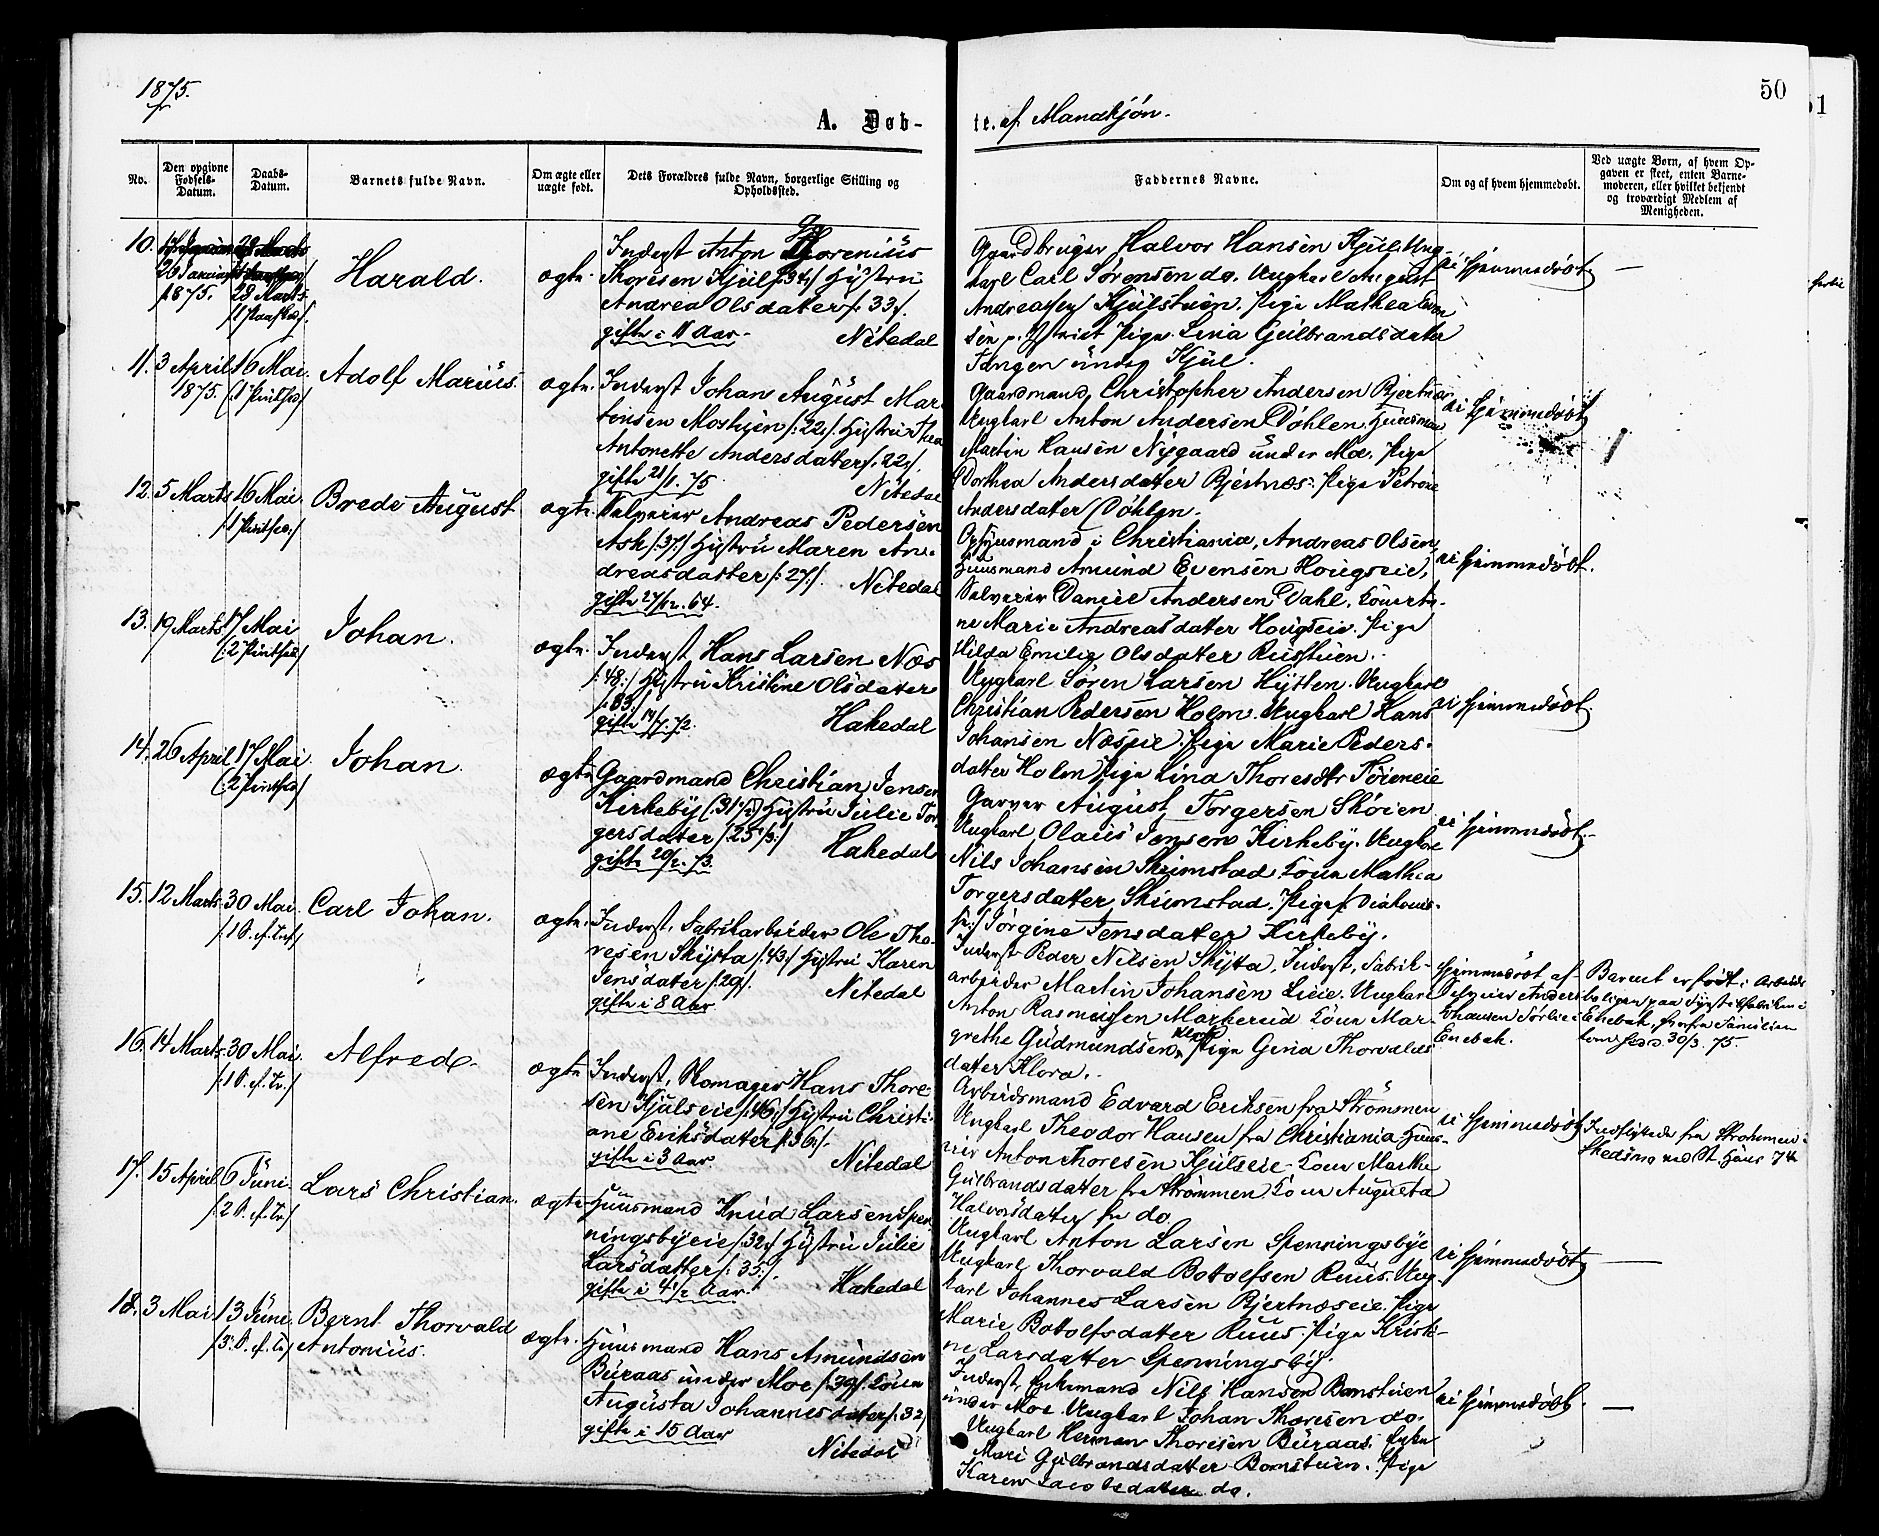 1875.
50
51
A. Døb-
te. af Mandkjøn.
No.
Den opgivne Fødsels-Datum.
Daabs-Datum.
Barnets fulde Navn.
Om ægte eller uægte født.
Dets Forældres fulde Navn, borgerlige Stilling og Opholdssted.
Faddernes Navne.
Om og af hvem hjemmedøbt.
Ved uægte Børn, af hvem Op-
gaven er skeet, enten Barne-
moderen, eller hvilket bekjendt
og troværdigt Medlem af
Menigheden.
10.
26 Januar
1875.
28 Marts
/1 Paaske/.
Harald.
ægte.
Inderst Anton Thorenius
Thoresen Kjul /:34:/ Hustru
Andrea Olsdatter /:33:/.
gifte i 11 Aar.
Nitedal
Gaardbruger Halvor Hansen Kjul. Ung-
karl Carl Sørensen do. Ungkarl August
Andreassen Kjulstuen. Pige Mathea
Pige Lina Gulbrandsdatter
Tangen under Kjul.
ei hjemmedøbt.
11.
3 April
1875.
16 Mai.
(1 Pintsed)
Adolf Marius.
ægte.
Inderst Johan August Mar-
tonsen Moshuen /:22:/. Hustru Thea
Antonette Andersdatter /:22:/.
gifte 21/1. 75
Nitedal
Gaardmand Christopher Andersen Bjertnæs
Ungkarl Anton Andersen Døhlen. Huusmand
Martin Hansen Nygaard under Moe. Pige
Dorthea Andersdatter Bjertnæs. Pige Petrine
Andersdatter Døhlen.
ei hjemmedøbt
12.
5 Marts
16 Mai.
/:1 Pintsed:/
Brede August
ægte.
Andreas Pedersen
Ask /:37:/ Hustru Maren An-
dreasdatter /:27:/.
Nitedal
gifte 27/12. 64.
Opsynsmand i Christiania, Andreas Olsen,
Huusmand Amund Evensen Hougseie,
Selveier Daniel Andersen Dahl. Kone
Marie Andreasdatter Hougseie. Pige
Hilda Emilie Olsdatter Rustuen.
ei hjemmedøbt.
13.
19 Marts
17 Mai
(:2 Pintsed)
Johan.
ægte.
Inderst Hans Larsen Næs
/:48:/ Hustru Kristine Olsdatter
/:33:/
gifte 14/7. 72.
Hakedal
Ungkarl Søren Larsen Hytten. Ungkarl
Christian Pedersen Holm. Ungkarl Hans
Johansen Næseie. Pige Marie Peders-
datter Holm Pige Lina Thoresdtr Tøieneie
ei hjemmedøbt.
14.
26 April
17 Mai
(:2 Pintsed)
Johan.
ægte
Gaardmand Christian Jensen
Kirkeby (:31½:) Hustru Julie Tor-
gersdatter /:25⅓:/
gifte 20/2. 73.
Hakedal
Garver August Torgersen Skøien
Ungkarl Olaus Jensen Kirkeby. Ungkarl
Nils Johansen Skrimstad. Kone Mathea
Torgersdatter Skrimstad. Pige /:Diakonis-
se:/ Jørgine Jensdatter Kirkeby.
ei hjemmedøbt.
15.
12 Marts
30 Mai.
/:1 S. ef. Tref/
Carl Johan.
ægte.
Inderst, Fabrikarbeider Ole Tho-
resen Skytta /:43:/ Hustru Karen
Jensdatter /:29:/.
gifte i 8 Aar
Nitedal
Inderst Peder Nilsen Skytta, Inderst, Fabrik-
arbeider Martin Johansen Lieie. Ungkarl
Anton Rasmussen Markerud. Kone Mar-
grethe Gudmundsen, Klora Pige Gina Thorvalds
datter Klora.
Hjemmedøbt af
Selveier Anders
Johansen Sørlie i
Enebak.
Barnet er født i Arbeids
boligen paa Fyrstikfabriken i
Enebak, hvorfra Familien
kom hid d. 30/3. 75.
16.
14 Marts
30 Mai.
/:1 S. ef. Tr./
Alfred.
ægte
Inderst, Skomager Hans Thore-
sen Kjulseie /:46:/ Hustru Christi-
ane Eriksdatter /:36:/.
gifte i 3 Aar
Nitedal
Arbeidsmand Edvard Eriksen fra Strømmen
Ungkarl Theodor Hansen fra Christiania. Huus-
eier Anton Thoresen Kjulseie. Kone Marthe
Gulbrandsdatter fra Strømmen. Kone Augusta
Halvorsdatter fr do.
ei hjemmedøbt
Indflyttede fra Strømmen i
Skedsmo ved St. Hans 74
17.
15 April
6 Juni.
/:2 S. ef. Tr./
Lars Christian.
ægte
Huusmand Knud Larsen Spen-
ningsbyeie /:32:/ Hustru Julie
Larsdatter /:35:/.
gifte i 4½ Aar.
Hakedal
Ungkarl Anton Larsen Spenningsbyeie
Ungkarl Thorvald Botolfsen Ruus. Ung-
karl Johannes Larsen Bjertnæseie. Pige
Marie Botolfsdatter Ruus. Pige Kristi-
ne Larsdatter Spenningsby.
ei hjemmedøbt
18.
3 Mai.
13 Juni.
/3. S. ef. Tr/
Bernt Thorvald
Antonius.
ægte.
Huusmand Hans Amundsen
Buraas under Moe /:39:/. Kone
Augusta Johannesdatter /:32/
gifte i 15 Aar
Nitedal
Inderst, Enkemand Nils Hansen Bomstuen
under Moe. Ungkarl Johan Thoresen do.
Ungkarl Herman Thoresen Buraas. Enke
Mari Gulbrandsdatter Bomstuen. Pige
Karen Jacobsdatter do.
ei hjemmedøbt.